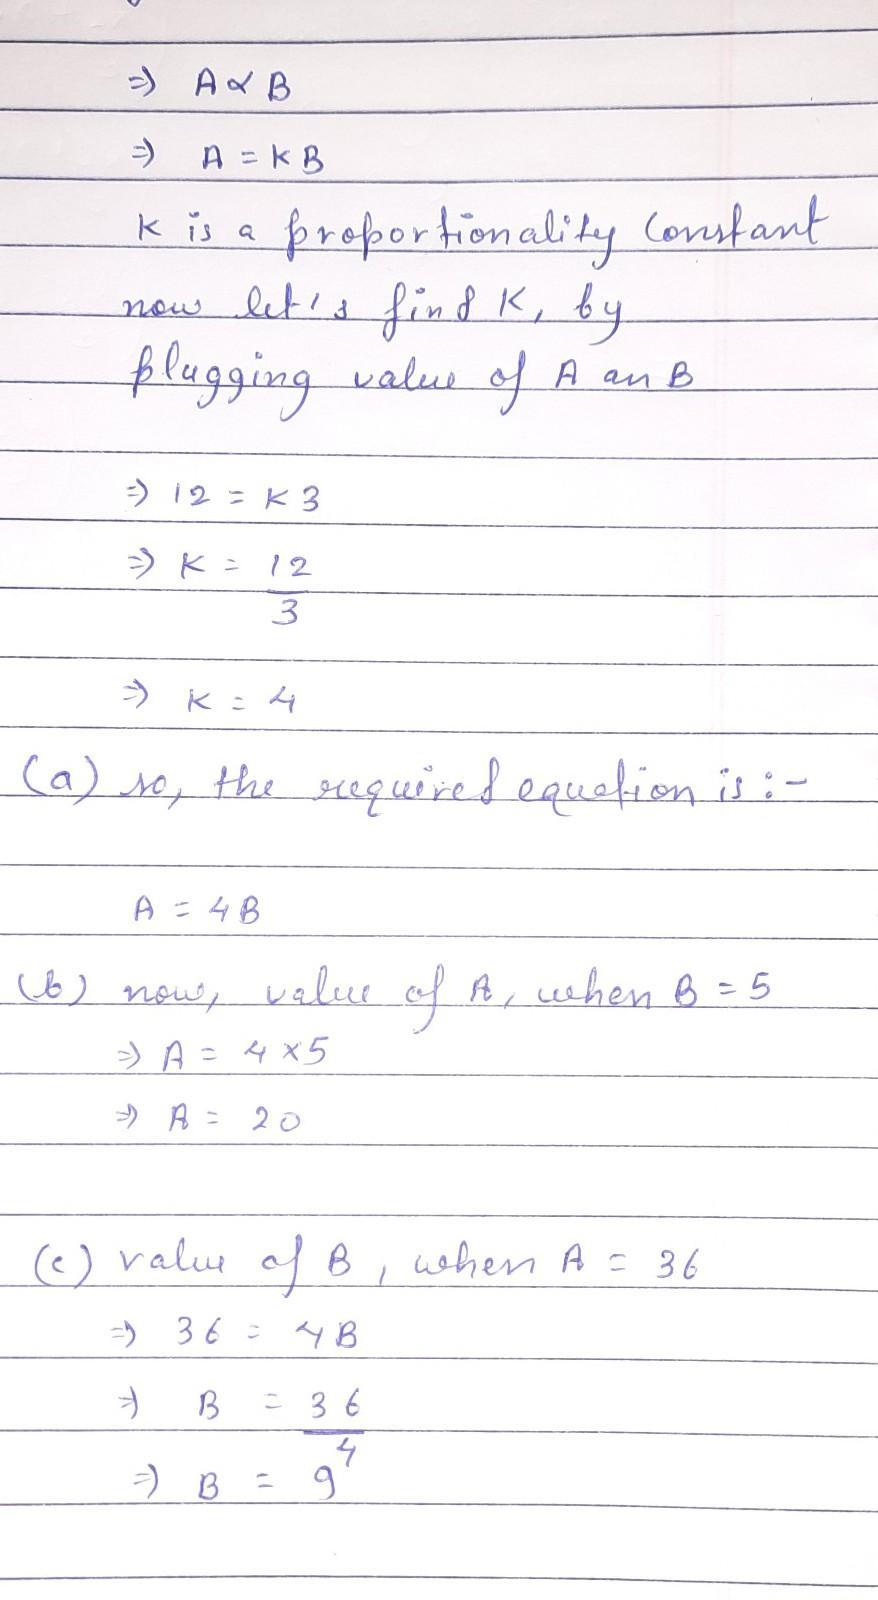 ⇒ A ∝ B
⇒ A = KB
K is a proportionality constant
now let's find K, by
plugging value of A an B
⇒ 12 = K3
⇒ K = 12
3
⇒ K = 4
(a) so, the required equation is :-
A = 4B
(b) now, value of A, when B = 5
⇒ A = 4 × 5
⇒ A = 20
(c) value of B, when A = 36
⇒ 36 = 4B
⇒ B = 36
4
⇒ B = 9